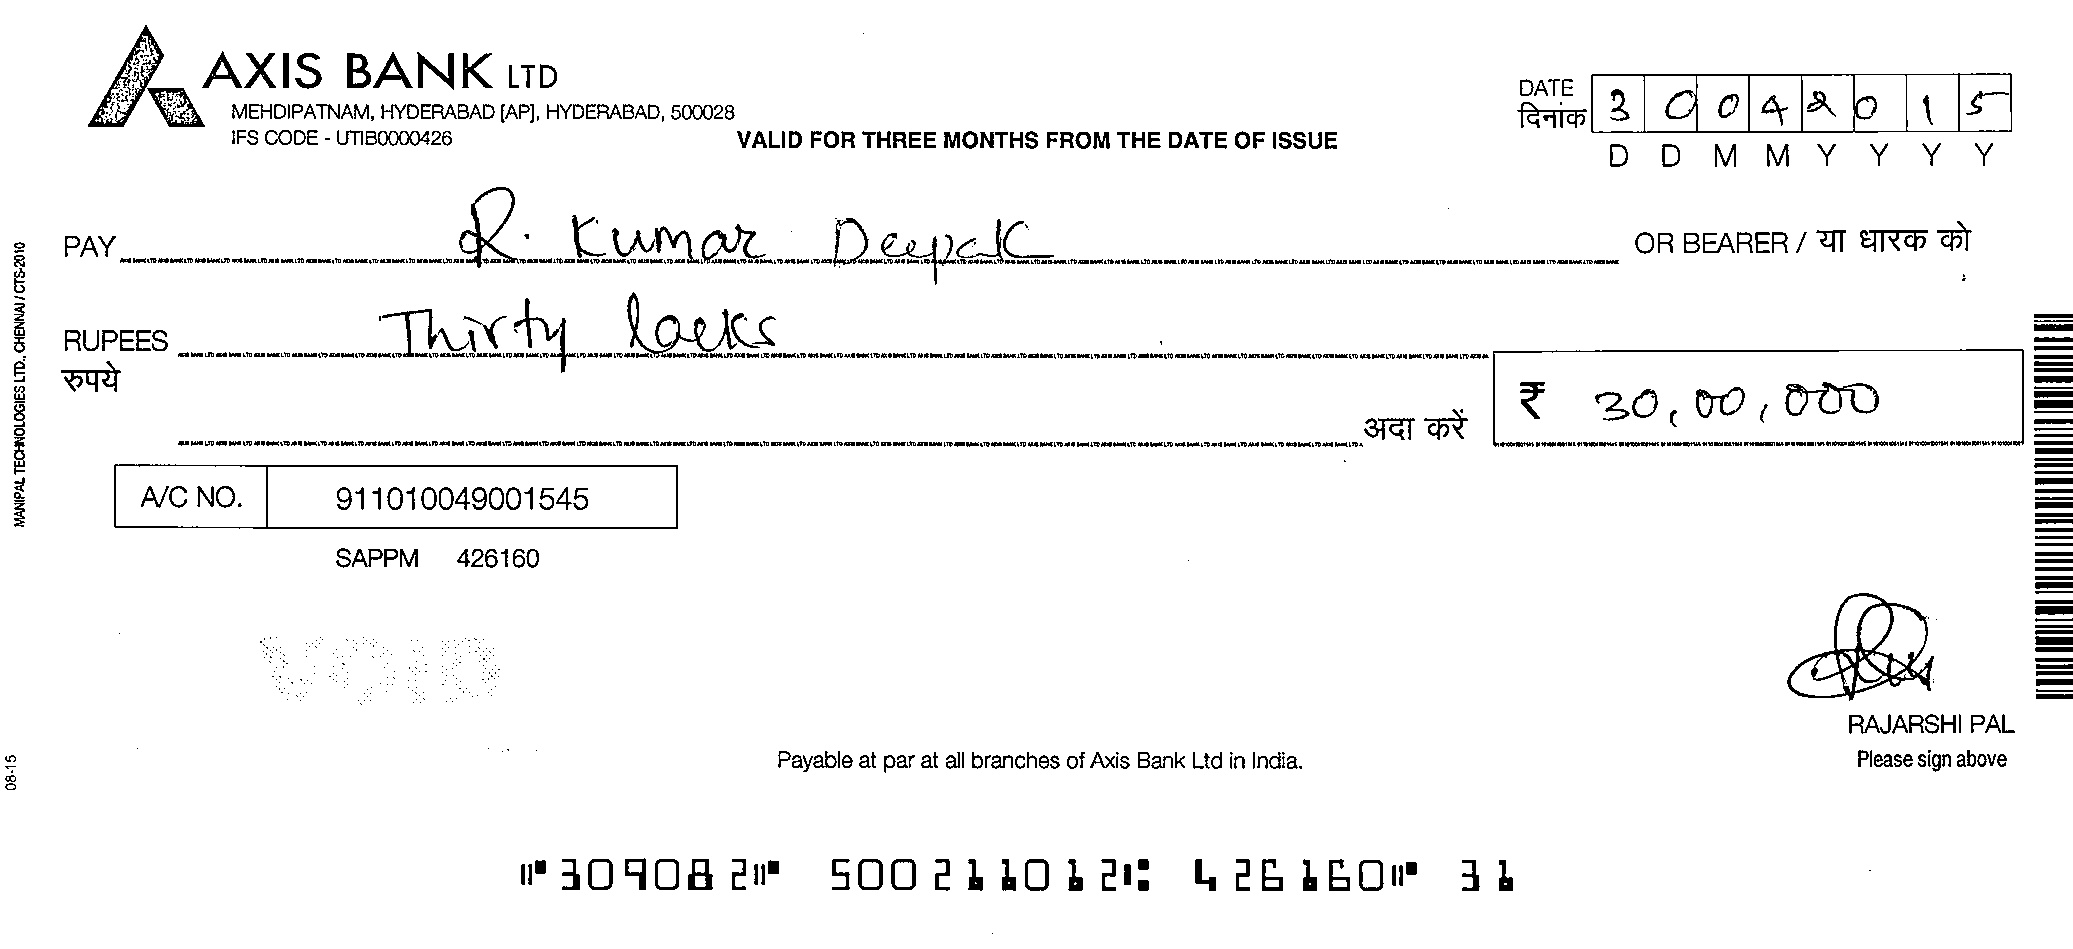 AXIS BANK LTD
MEHDIPATNAM, HYDERABAD [AP], HYDERABAD, 500028
IFS CODE - UTIB0000426
VALID FOR THREE MONTHS FROM THE DATE OF ISSUE
DATE
दिनांक
3 0 0 4 2 0 1 5
D D M M Y Y Y Y
PAY R. Kumar Deepak OR BEARER / या धारक को
RUPEES Thirty lacks
रुपये
अदा करें ₹ 30,00,000
A/C NO. 911010049001545
SAPPM 426160
VOID
RAJARSHI PAL
Please sign above
Payable at par at all branches of Axis Bank Ltd in India.
⑈309082⑈ 500211012⑆ 426160⑈ 31
MANIPAL TECHNOLOGIES LTD., CHENNAI / CTS-2010
08-15